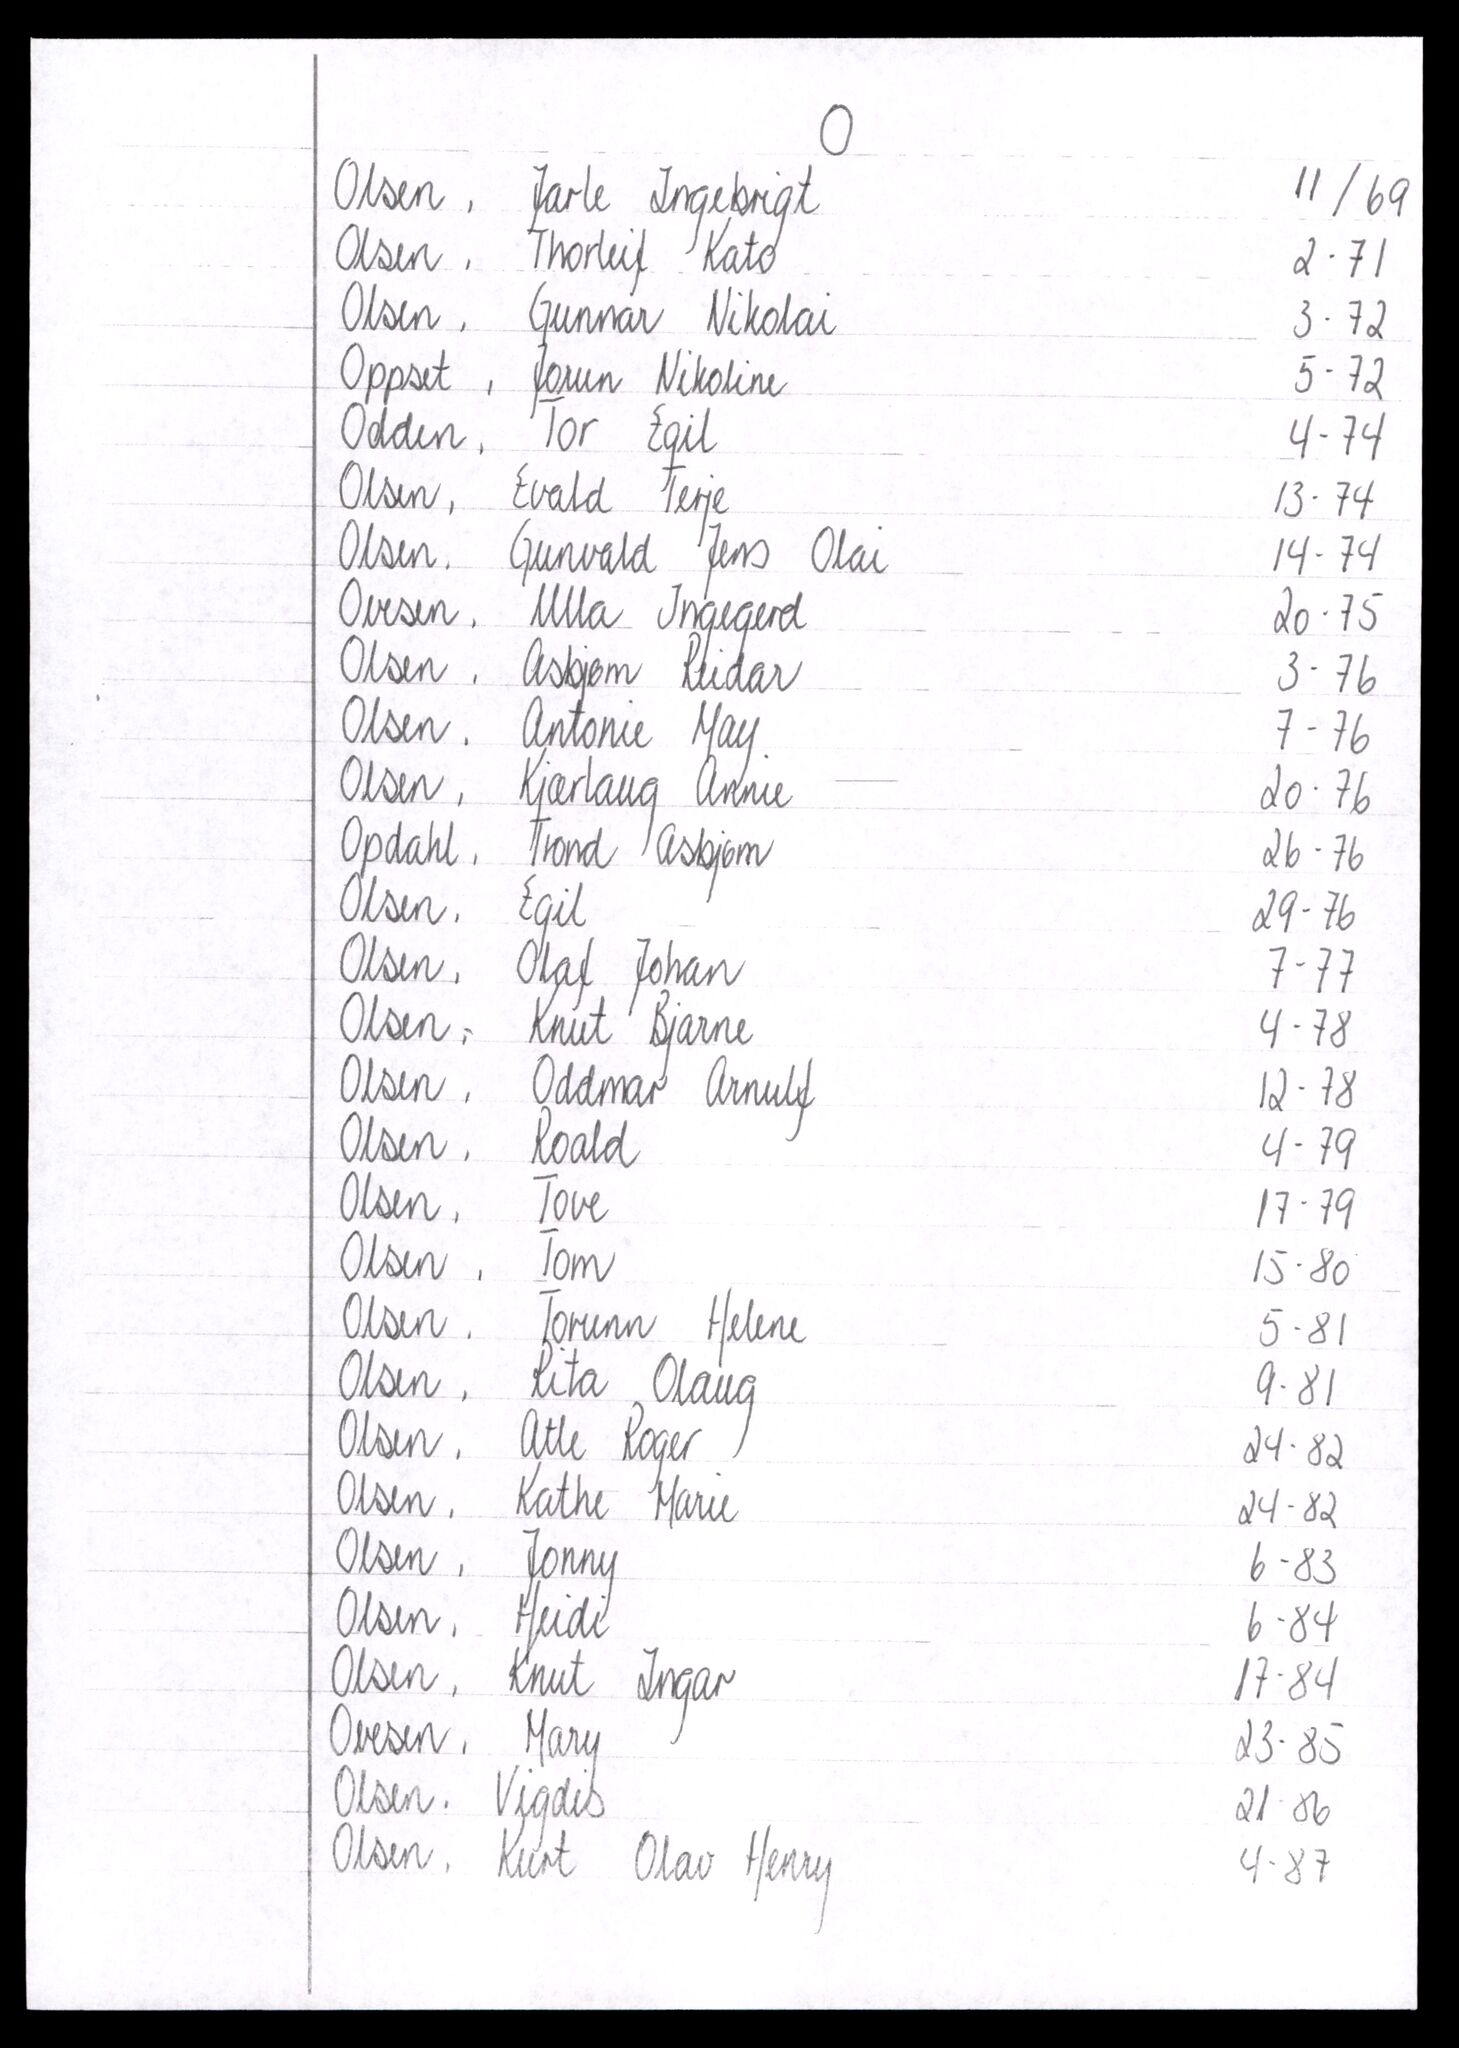 O
Olsen, Jarle Ingebrigt 11/69
Olsen, Thorleif Kato 2-71
Olsen, Gunnar Nikolai 3-72
Oppset, Jorun Nikoline 5-72
Odden, Tor Egil 4-74
Olsen, Evald Terje 13-74
Olsen, Gunvald Jens Olai 14-74
Ovesen, Ulla Ingegerd 20-75
Olsen, Asbjørn Reidar 3-76
Olsen, Antonie May 7-76
Olsen, Kjærlaug Annie 20-76
Opdahl, Trond Asbjørn 26-76
Olsen, Egil 29-76
Olsen, Olaf Johan 7-77
Olsen, Knut Bjarne 4-78
Olsen, Oddmar Arnulf 12-78
Olsen, Roald 4-79
Olsen, Tove 17-79
Olsen, Tom 15-80
Olsen, Torunn Helene 5-81
Olsen, Rita Olaug 9-81
Olsen, Atle Roger 24-82
Olsen, Kathe Marie 24-82
Olsen, Jonny 6-83
Olsen, Heidi 6-84
Olsen, Knut Ingar 17-84
Ovesen, Mary 23-85
Olsen. Vigdis 21-86
Olsen, Kurt Olav Henry 4-87